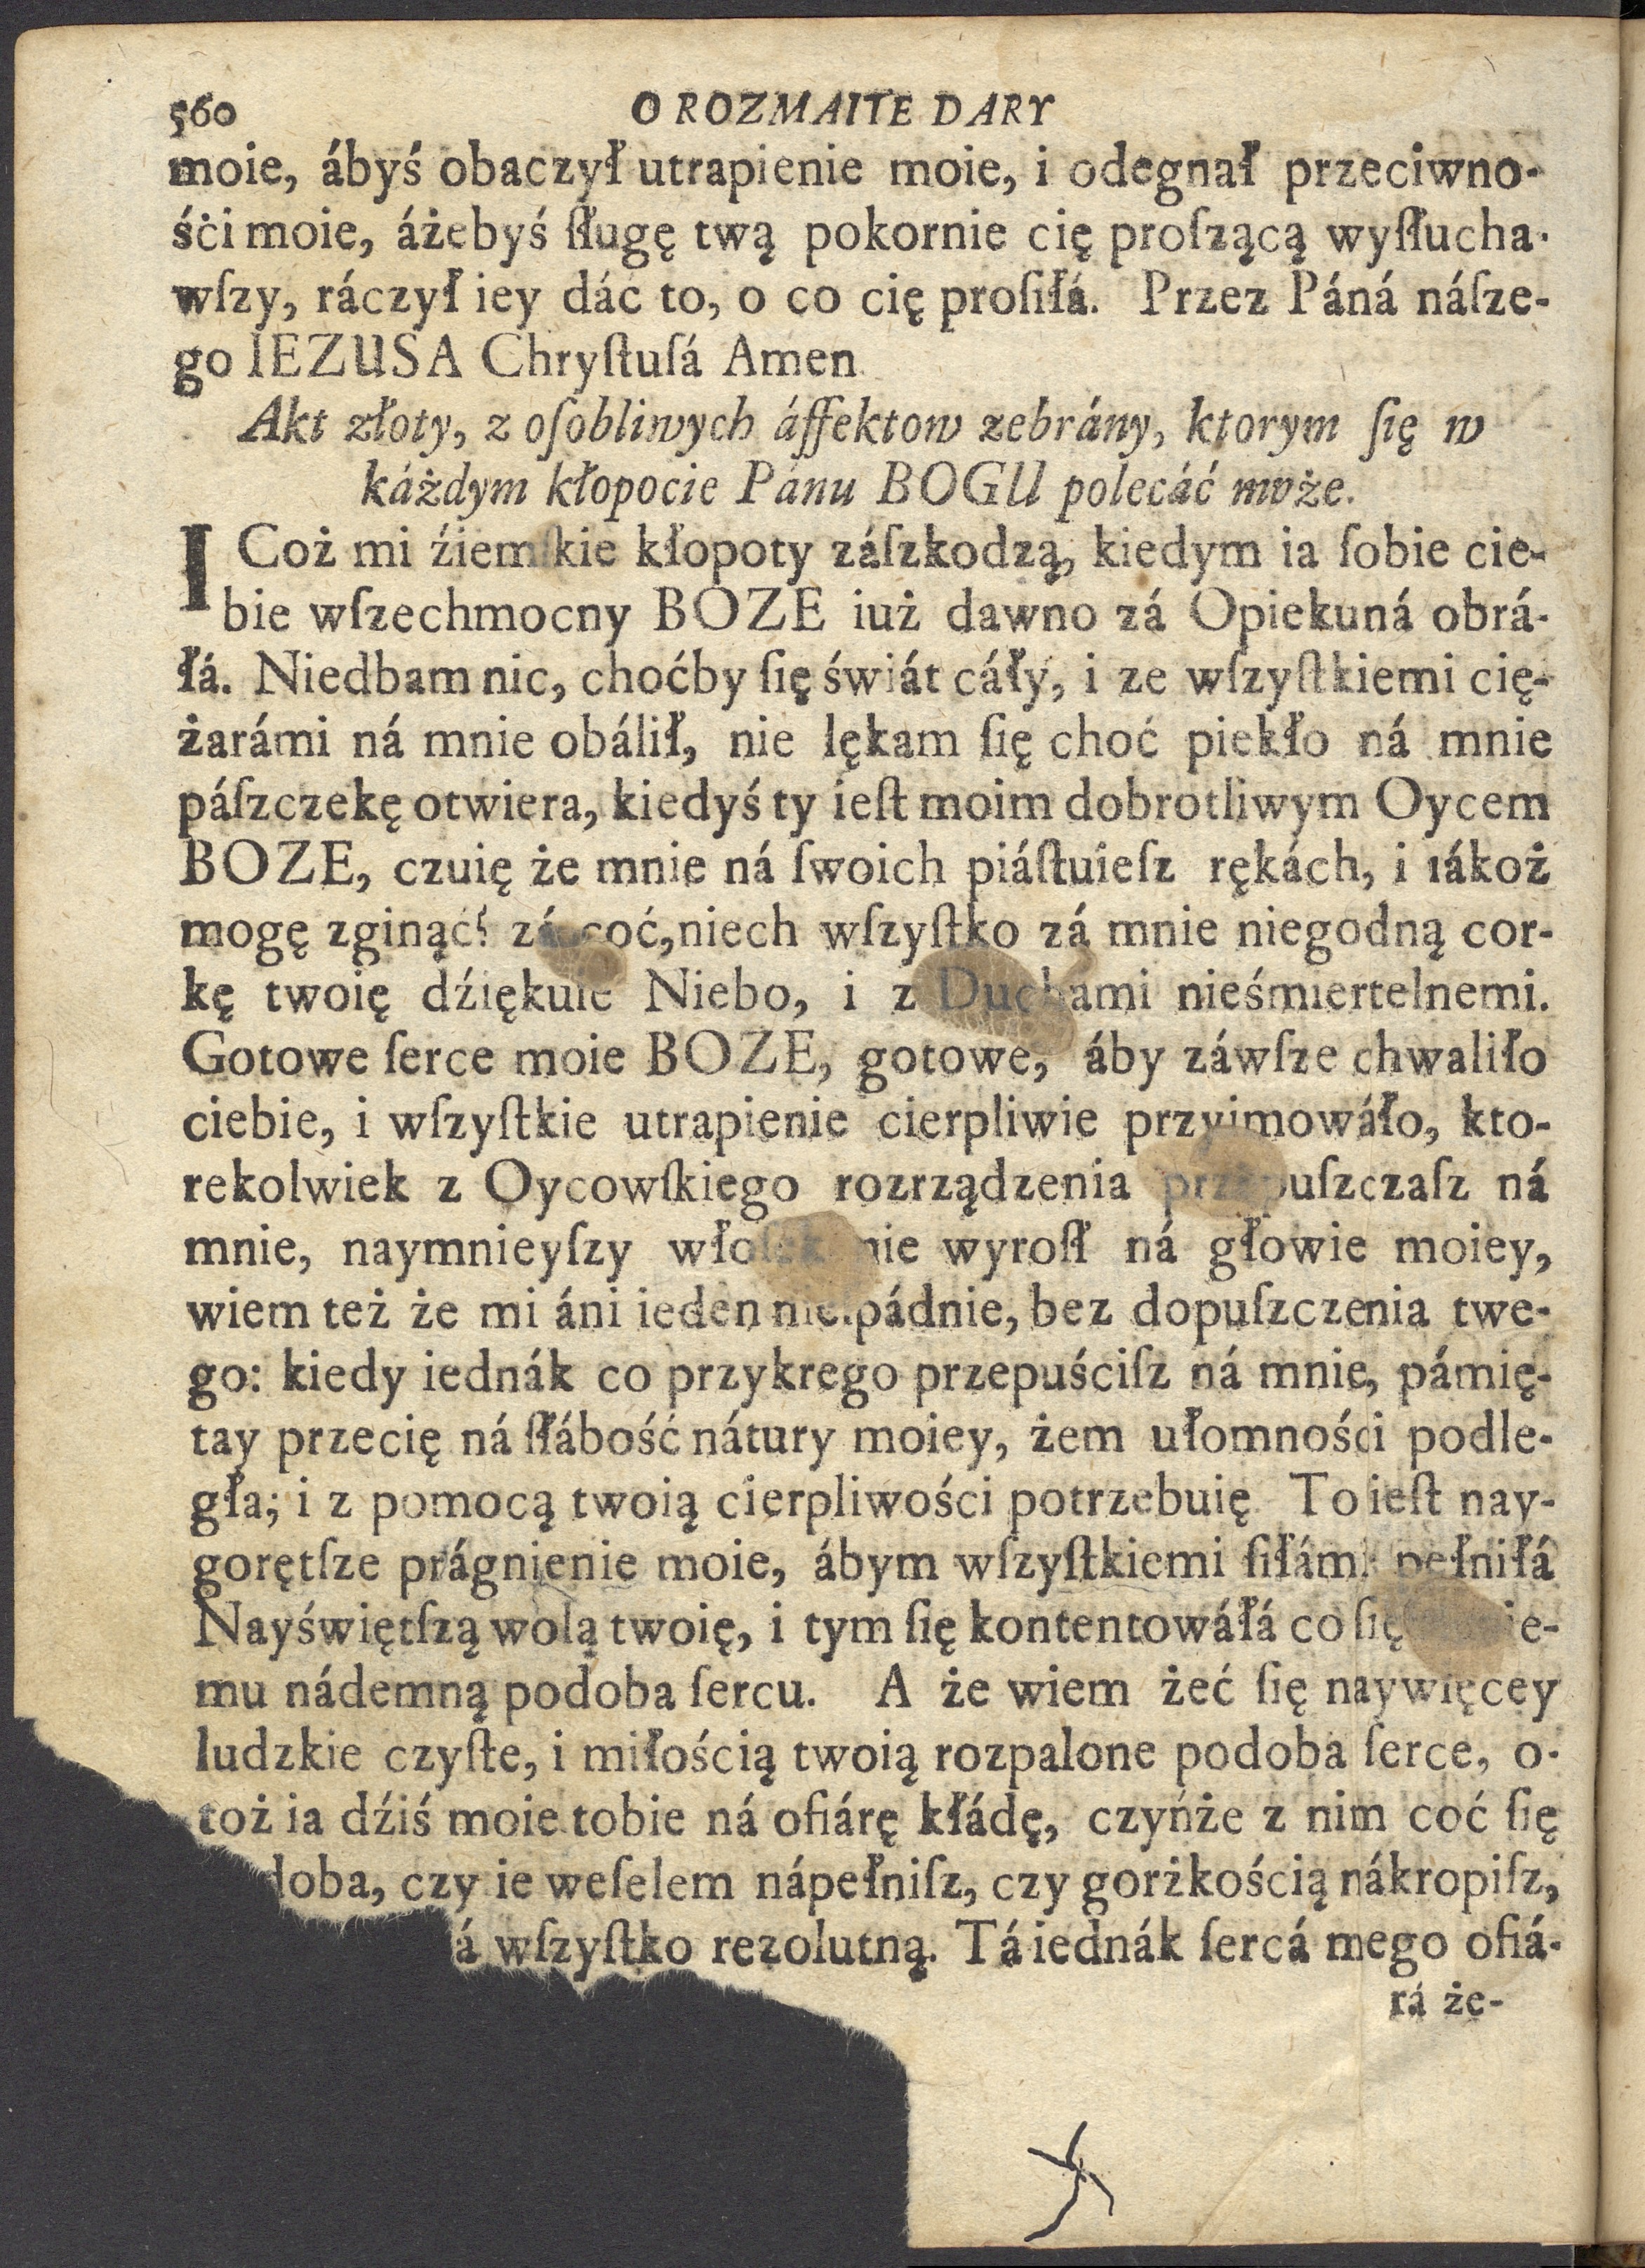 560 O ROZMAITE DARY
moie, ábyś obaczył utrapienie moie, i odegnał przeciwno-
śći moie, áżebyś ſługę twą pokornie cię proſzącą wyſłucha-
wſzy, ráczył iey dáć to, o co cię proſiłá. Przez Páná náſze-
go IEZUSA Chryſtuſá Amen
Akt złoty, z oſobliwych áffektow zebrány, ktorym ſię w
káżdym kłopocie Pánu BOGU polecáć może.
I Coż mi źiemſkie kłopoty záſzkodzą, kiedym ia ſobie cie-
bie wſzechmocny BOZE iuż dawno zá Opiekuná obrá-
łá. Niedbam nic, choćby ſię świát cáły, i ze wſzyſtkiemi cię-
żarámi ná mnie obálił, nie lękam ſię choć piekło ná mnie
páſzczekę otwiera, kiedyś ty ieſt moim dobrotliwym Oycem
BOZE, czuię że mnie ná ſwoich piáſtuieſz rękách, i iákoż
mogę zginąć? zá coć, niech wſzyſtko zá mnie niegodną cor-
kę twoię dźiękuie Niebo, i z Duchami nieśmiertelnemi.
Gotowe ſerce moie BOZE, gotowe, áby záwſze chwaliło
ciebie, i wſzyſtkie utrapienie cierpliwie przyimowáło, kto-
rekolwiek z Oycowſkiego rozrządzenia przepuſzczaſz ná
mnie, naymnieyſzy włoſek nie wyroſł ná głowie moiey,
wiem też że mi áni ieden nie ſpádnie, bez dopuſzczenia twe-
go: kiedy iednák co przykrego przepuściſz ná mnie, pámię-
tay przecię ná ſłábość nátury moiey, żem ułomności podle-
gła; i z pomocą twoią cierpliwości potrzebuię To ieſt nay-
gorętſze prágnienie moie, ábym wſzyſtkiemi ſiłámi pełniłá
Nayświętſzą wolą twoię, i tym ſię kontentowáłá co ſię e-
mu nádemną podoba ſercu. A że wiem żeć ſię naywięcey
ludzkie czyſte, i miłością twoią rozpalone podoba ſerce, o-
toż ia dźiś moie tobie ná ofiárę kłádę, czyńże z nim coć ſię
doba, czy ie weſelem nápełniſz, czy gorżkością nákropiſz,
á wſzyſtko rezolutną. Tá iednák ſercá mego ofiá-
rá że-